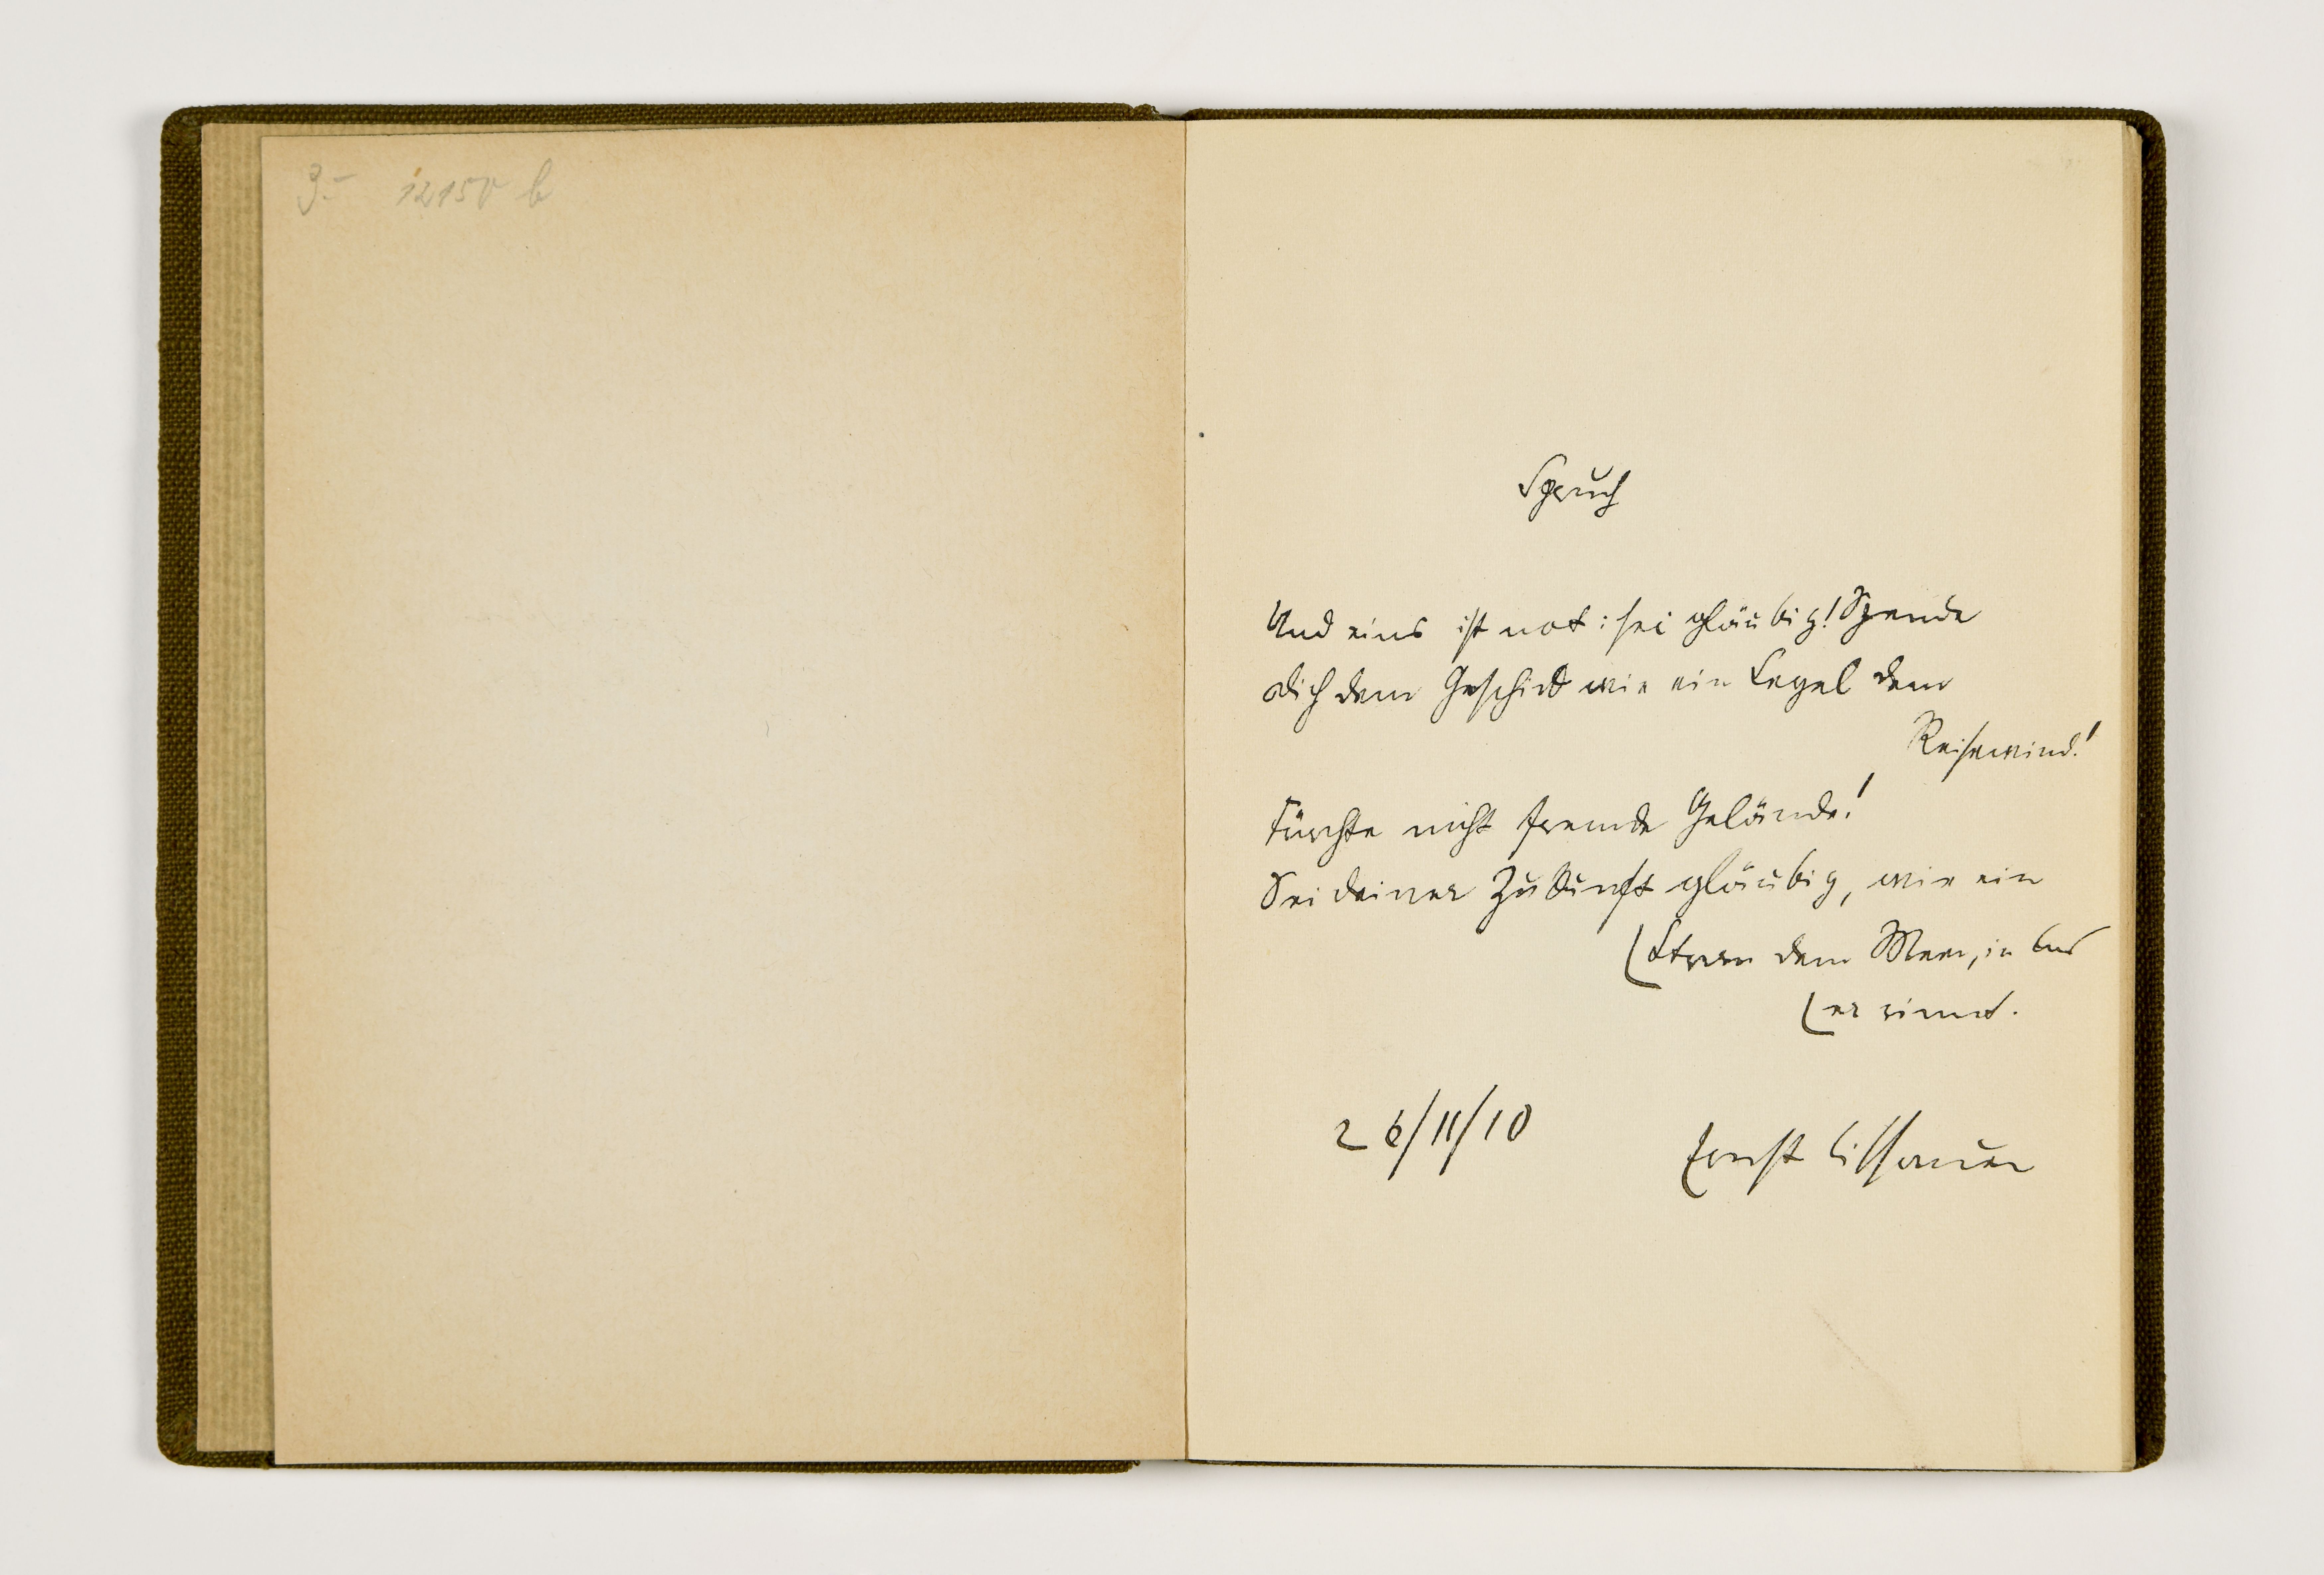 3.- 12150 b
Spruch
Und eins ist not: sei gläubig! Spende
dich dem Geschick wie ein Segel dem
Reisewind!
Fürchte nicht fremde Gelände!
Sei deiner Zukunft gläubig, wie ein
(Strom dem Meer, in das
(er rinnt.
26/11/10
Ernst Lissauer